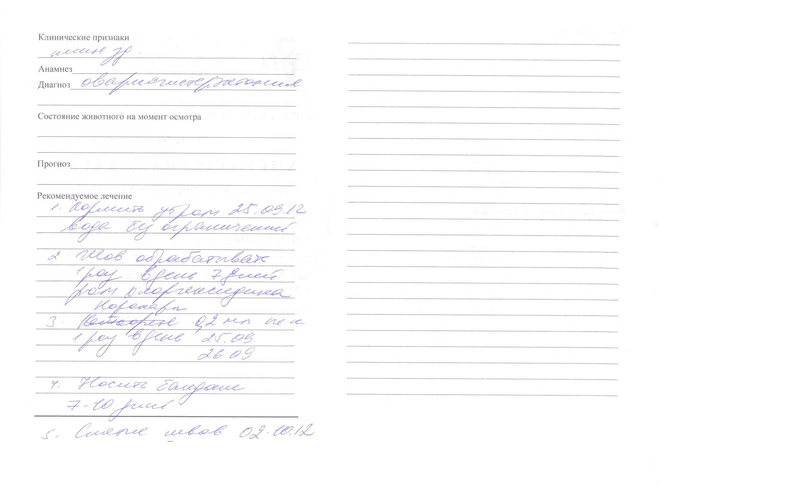 Клинические признаки
клин зд.
Анамнез
Диагноз овариогистерэктомия
Состояние животного на момент осмотра
Прогноз
Рекомендуемое лечение
1. Кормить утром 25.09.12
вода без ограничений
2. Шов обрабатывать
1 раз в день 7 дней
р-ом хлоргексидина
3. 0,2 мл
1 раз в день 25.09
26.09
4. Носить бандаж
7-10 дней
5. Снятие швов 02.10.12